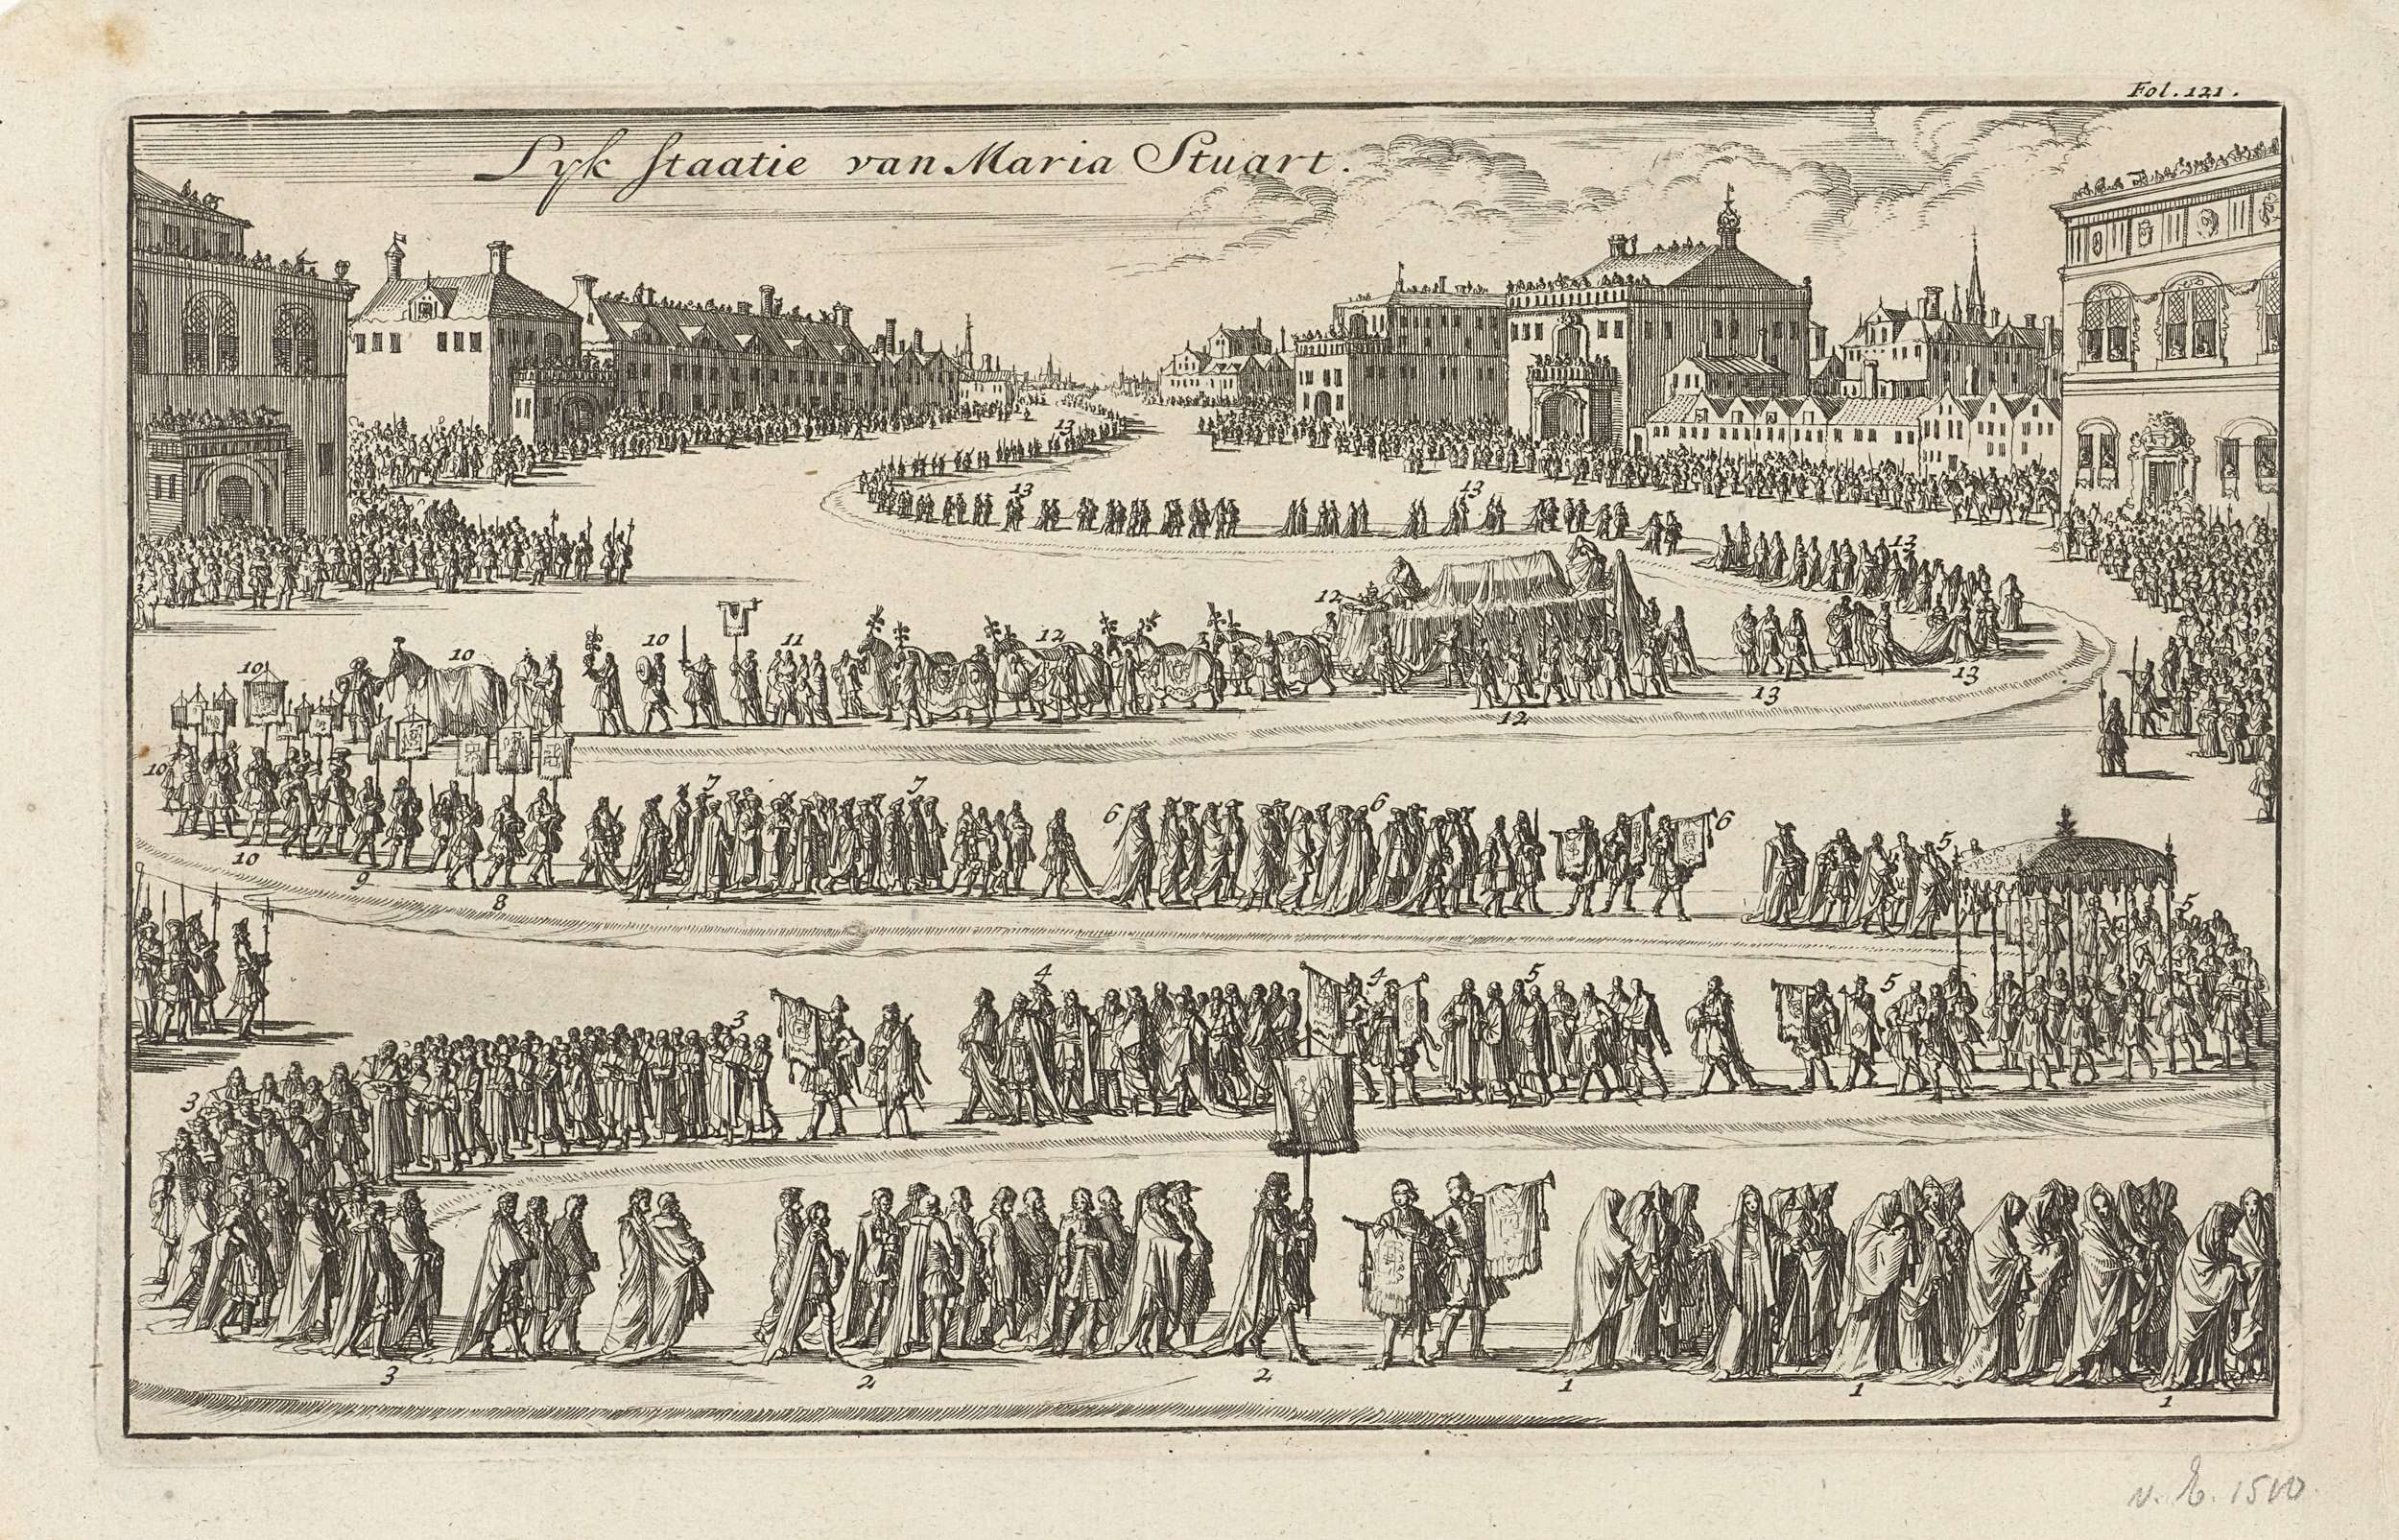 Fol. 121.
Lyk staatie van Maria Stuart.
13
13 13
13
12
10 11 12
10 10
13
13
12
10
7 7 6 6 6
5
10
9
8
5
4 4 5
5
3
3
3 2 2 1 1 1